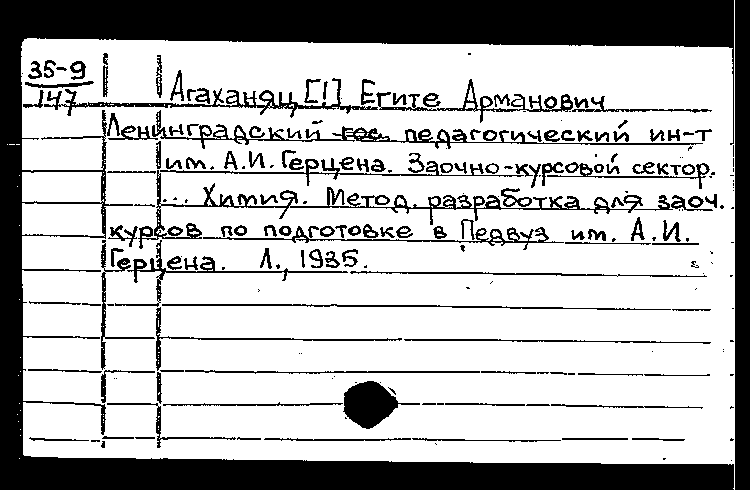 35-9
147
Агаханяц [!], Егите Арманович
Ленинградский гос. педагогический ин-т
им. А.И. Герцена. Заочно-курсовой сектор.
... Химия. Метод. разработка для заоч.
курсов по подготовке в Педвуз им. А.И.
Герцена. Л., 1935.